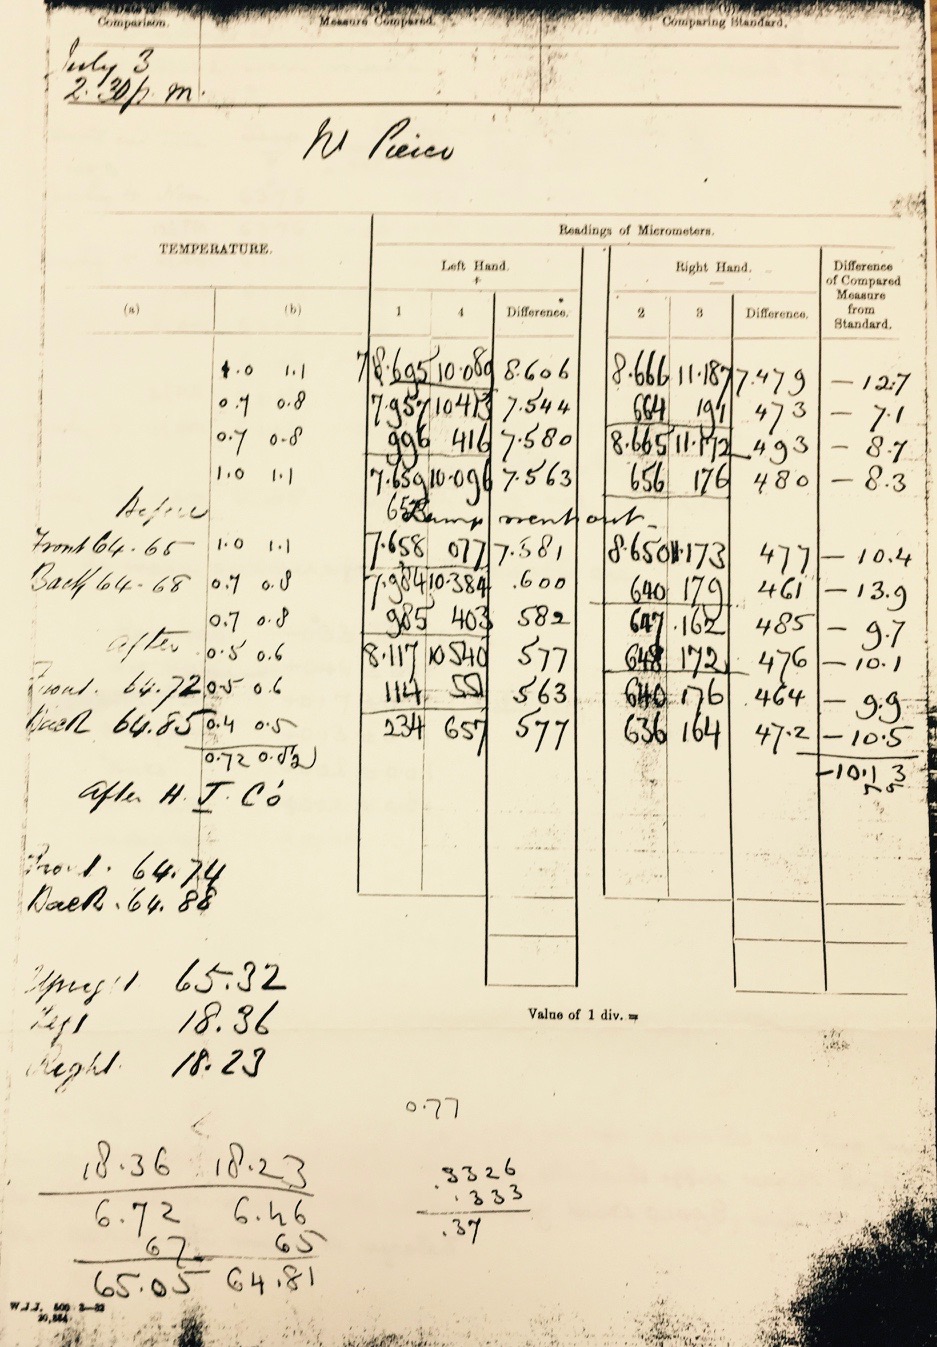 Comparison. Measure Compared. Comparing Standard.
July 3
2.30 p m.
Readings of Micrometers.
TEMPERATURE.
Left Hand. Right Hand. Difference of Compared Measure from Standard.
+ —
(a) (b) 1 4 Difference. 2 3 Difference.
1.0 1.1 10.089 8.606 8.666 11.187 7.479 – 12.7
0.7 0.8 7.957 10 413 7.544 664 191 473 – 7.1
0.7 0.8 996 416 7.580 8.665 11.172 493 – 8.7
1.0 1.1 7.659 10.096 7.563 656 176 480 – 8.3
Before Lamp went out
Front 64.65 1.0 1.1 7.658 077 7.581 8.650 11.173 477 – 10.4
Back 64.68 0.7 0.8 7.984 10.384 .600 640 179 461 – 13.9
0.7 0.8 985 403 582 647 .162 485 – 9.7
After 0.5 0.6 8.117 10 540 577 648 172 476 – 10.1
Front. 64.72 0.5 0.6 114 551 563 640 176 464 – 9.9
Back 64.85 0.4 0.5 234 657 577 636 164 47.2 – 10.5
0.72 0.82 –10.13
After H. J. Co
Front. 64.74
Back. 64.88
Upright 65.32
Left 18.36
Value of 1 div. =
Right. 18.23
0.77
18.36 18.23 .3326
.333
6.72 6.46 .37
67 65
65.05 64.81
W.J.J. 500 3—32